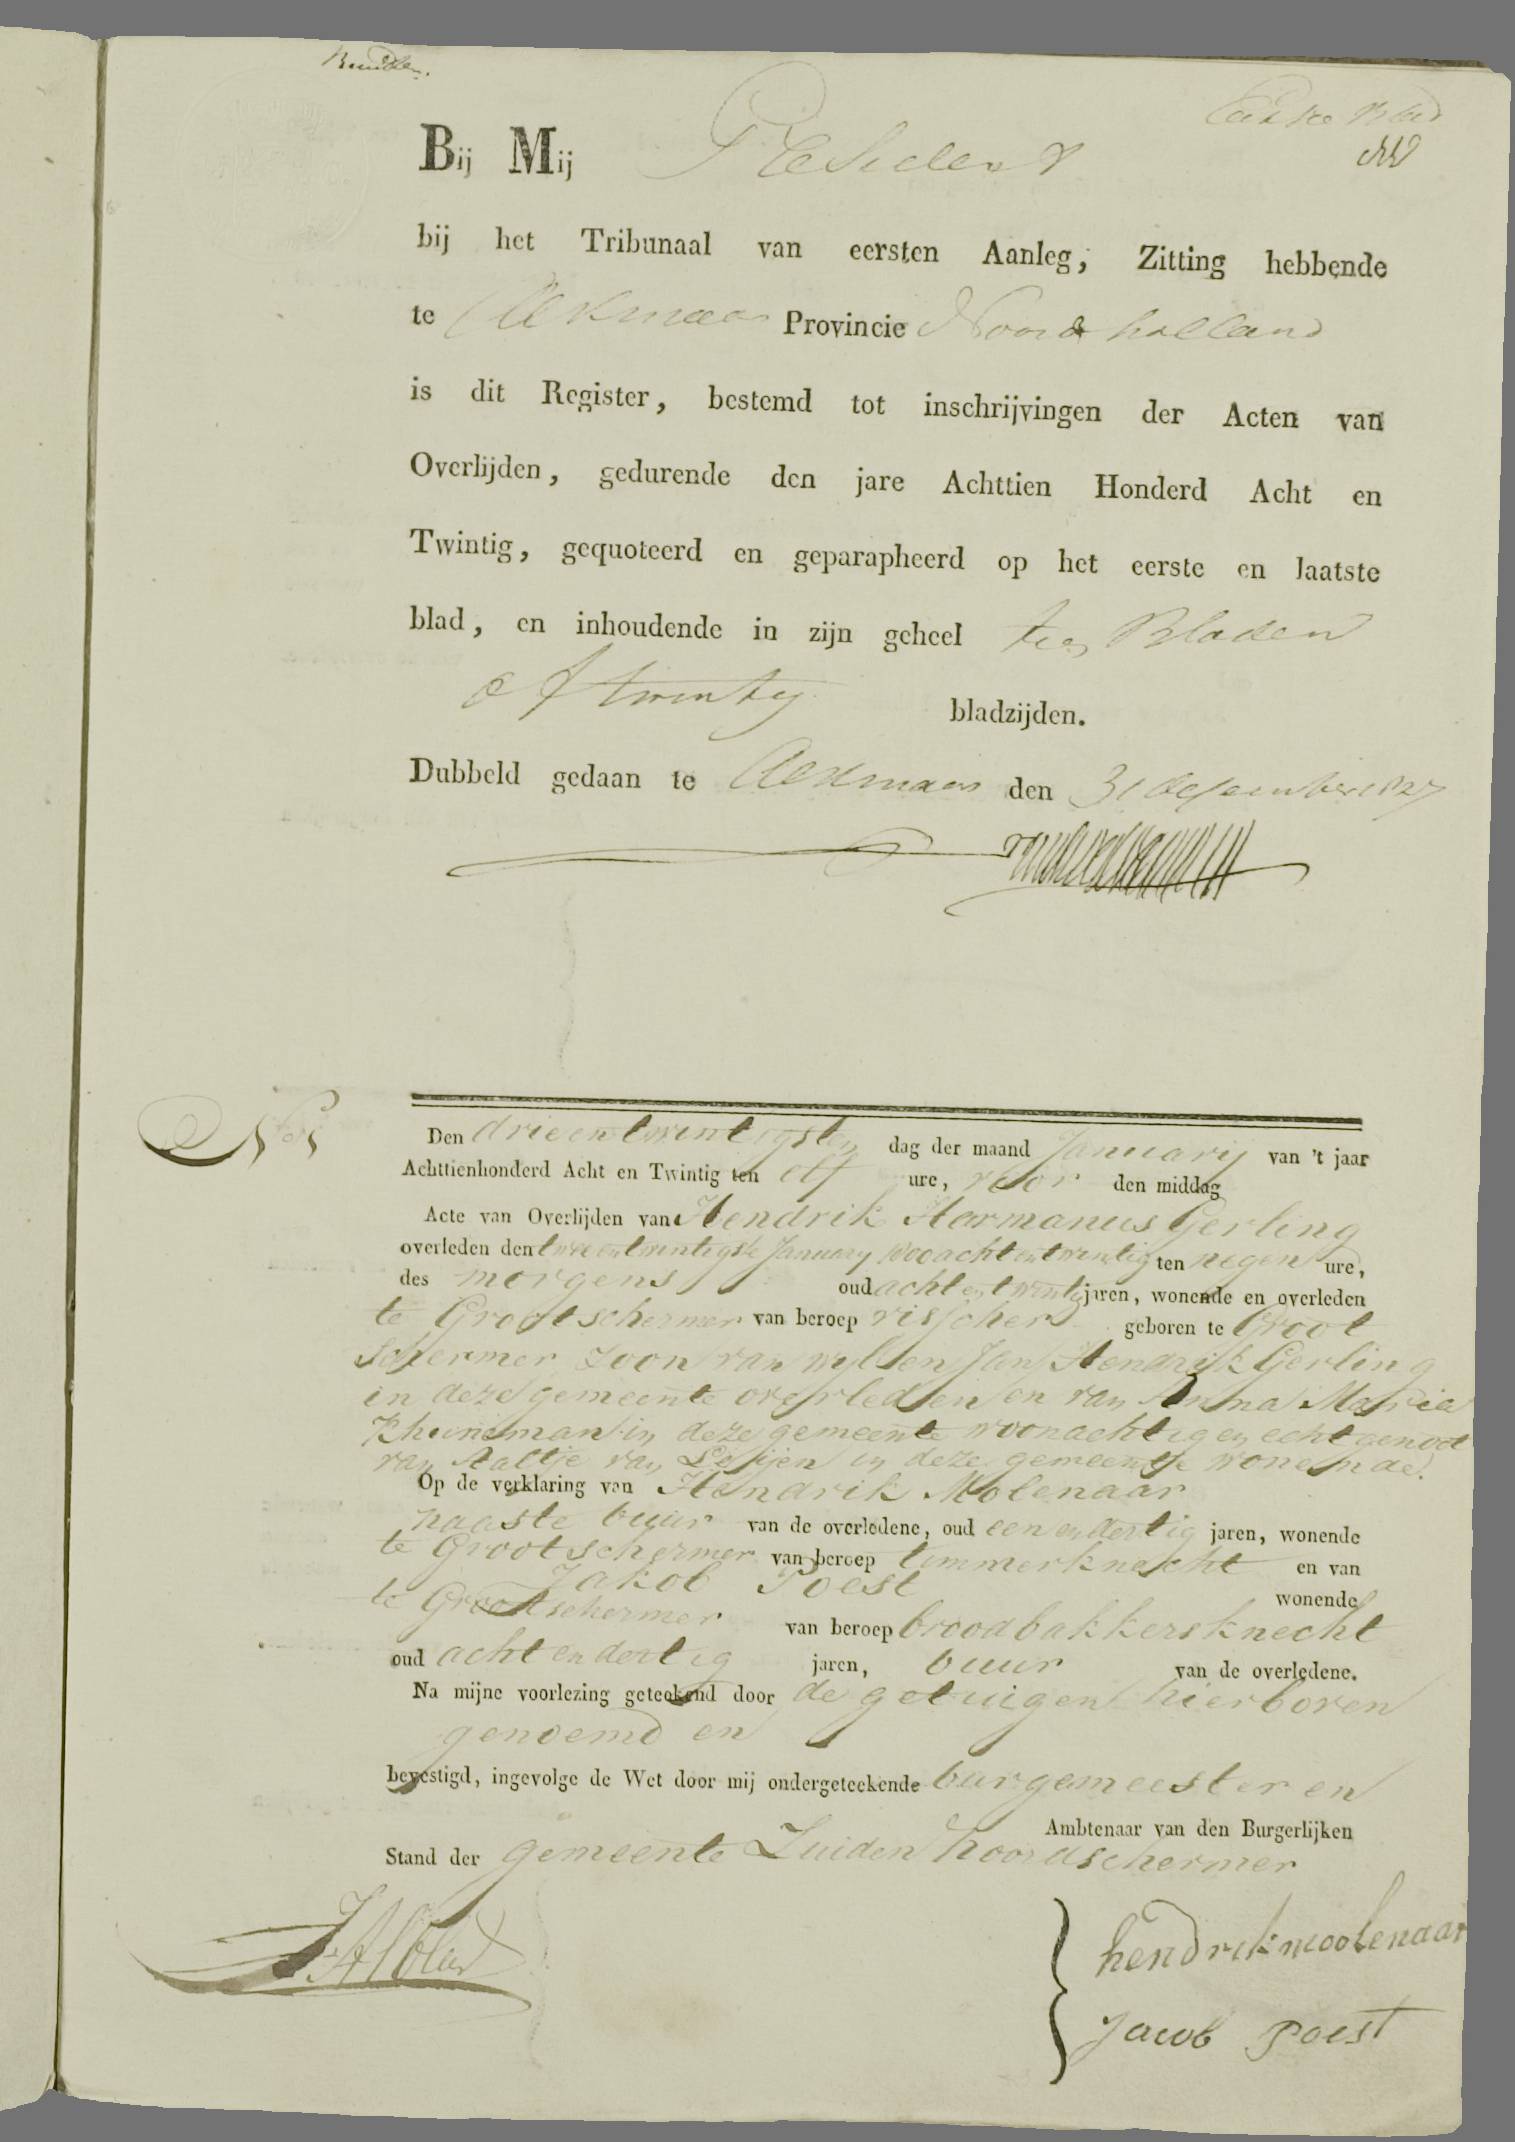 Eerste Blad
Bij Mij President
bij het Tribunaal van eersten Aanleg, Zitting hebbende
te Alkmaar Provincie Noordholland
is dit Register, bestemd tot inschrijvingen der Acten van
Overlijden, gedurende den jare Achttien Honderd Acht en
Twintig, gequoteerd en geparapheerd op het eerste en laatste
blad, en inhoudende in zijn geheel tien Bladen
of twintig bladzijden.
Dubbeld gedaan te Alkmaar den 31 december 1827
No 1
Den drieentwintigsten dag der maand January van 't jaar
Achttienhonderd Acht en Twintig ten elf ure, voor den middag
Acte van Overlijden van Hendrik Harmanus Gerling
overleden den tweeentwintigste January 1800 acht en twintig ten negen ure,
des morgens oud acht en twintig jaren, wonende en overleden
te Grootschermer van beroep visscher geboren te Groot
Schermer Zoon van wylen Jan Hendrik Gerling
in deze gemeente overleden en van Anna Maria
in deze gemeente woonachtig en echtgenoot
van Aaltje van in deze gemeente wonende.
Op de verklaring van Hendrik Molenaar
naaste buur van de overledene, oud een en dertig jaren, wonende
te Grootschermer van beroep timmerknecht en van
Jakob Poest wonende
te Grootschermer van beroep broodbakkersknecht
oud acht en dertig jaren, buur van de overledene.
Na mijne voorlezing geteekend door de getuigen hierboven
genoemd en
bevestigd, ingevolge de Wet door mij ondergeteekende burgemeester en
Ambtenaar van den Burgerlijken
Stand der gemeente Zuiden Noordschermer
hendrik moolenaar
Jacob Poest